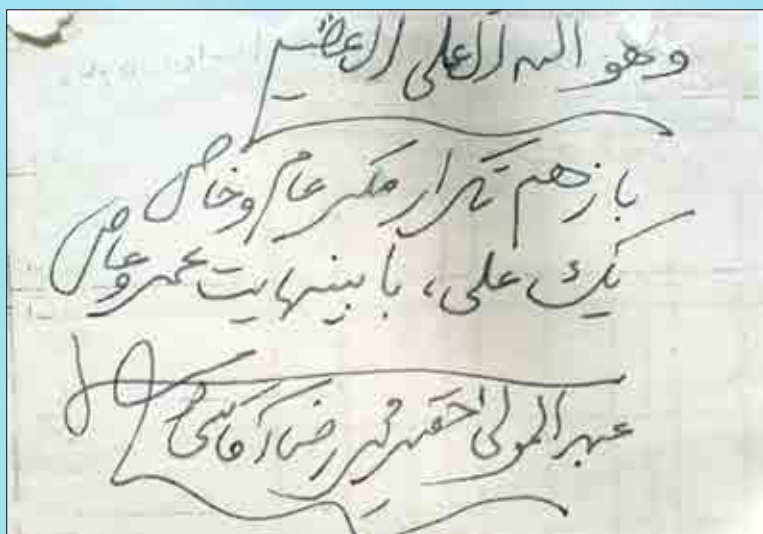 وهو الله العلی العظیم
بازهم تکرار مکر عام و خاص
یک علی، با بینهایت عمرو عاص
عبدالمولی احقر محمدرضا آقاسی